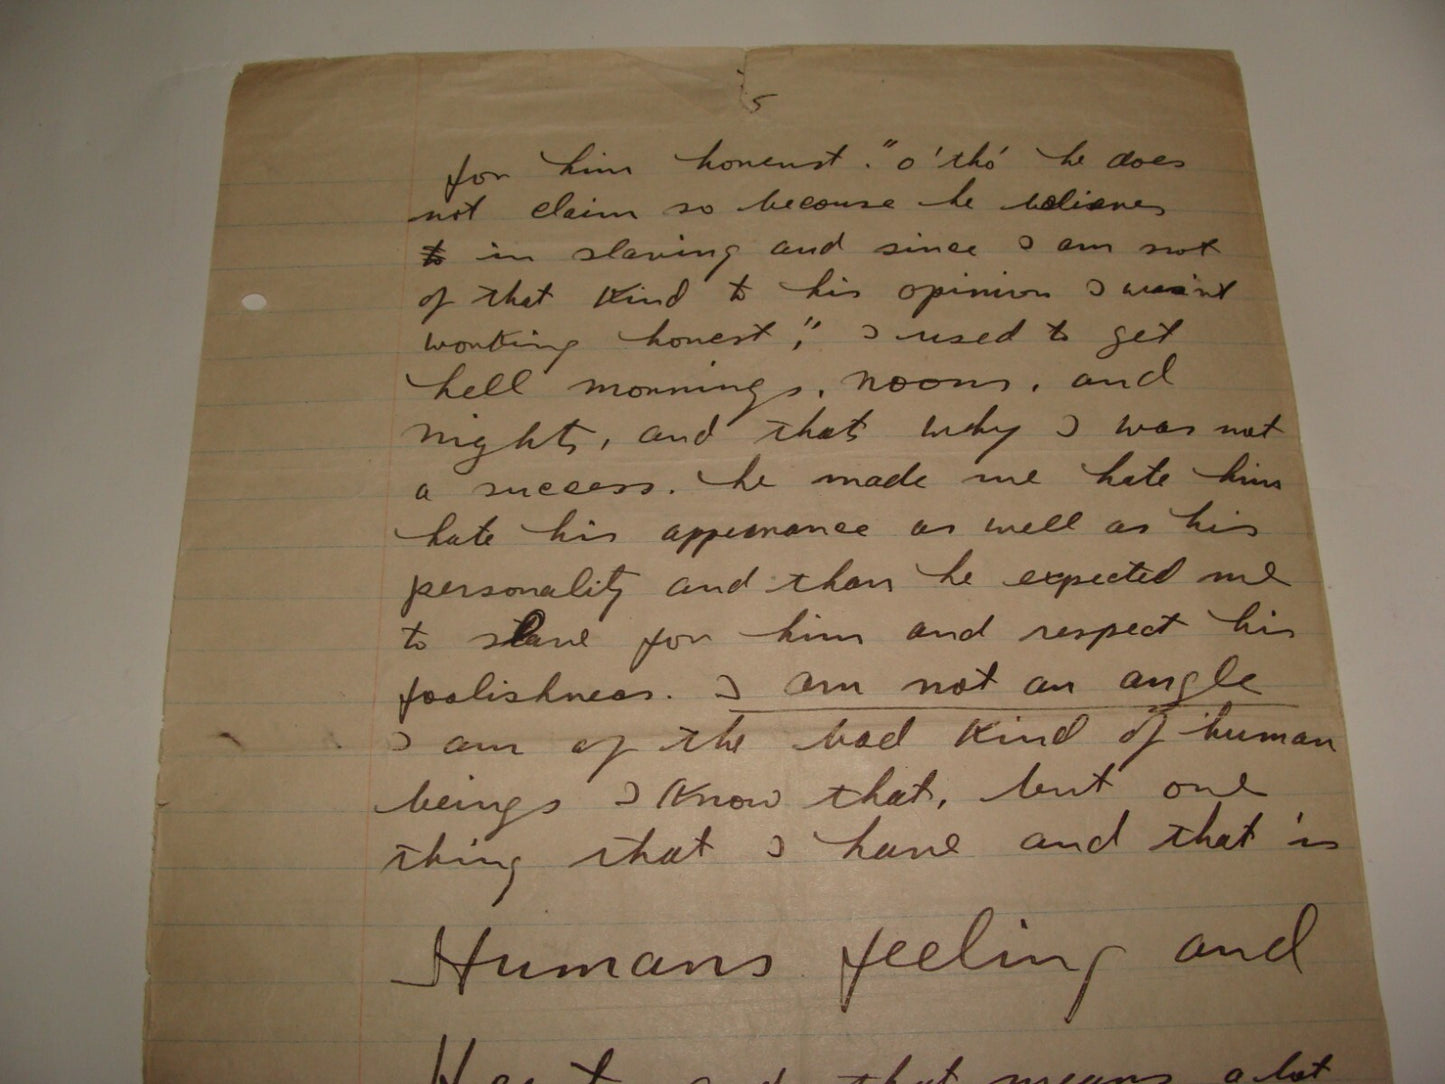 5
for him honenst." o'tho' he does
not claim so becouse he believes
to in slaving and since I am not
of that kind to his opinion I wasint
working honest," I used to get
hell mornnings, noons, and
nights, and thats why I was not
a success. he made me hate him
hate his appearance as well as his
personality and than he expected me
to slave for him and respect his
foolishness. I am not an angle
I am of the bad kind of human
beings I know that, but one
thing that I have and that is
Humans feeling and
and that means a lot